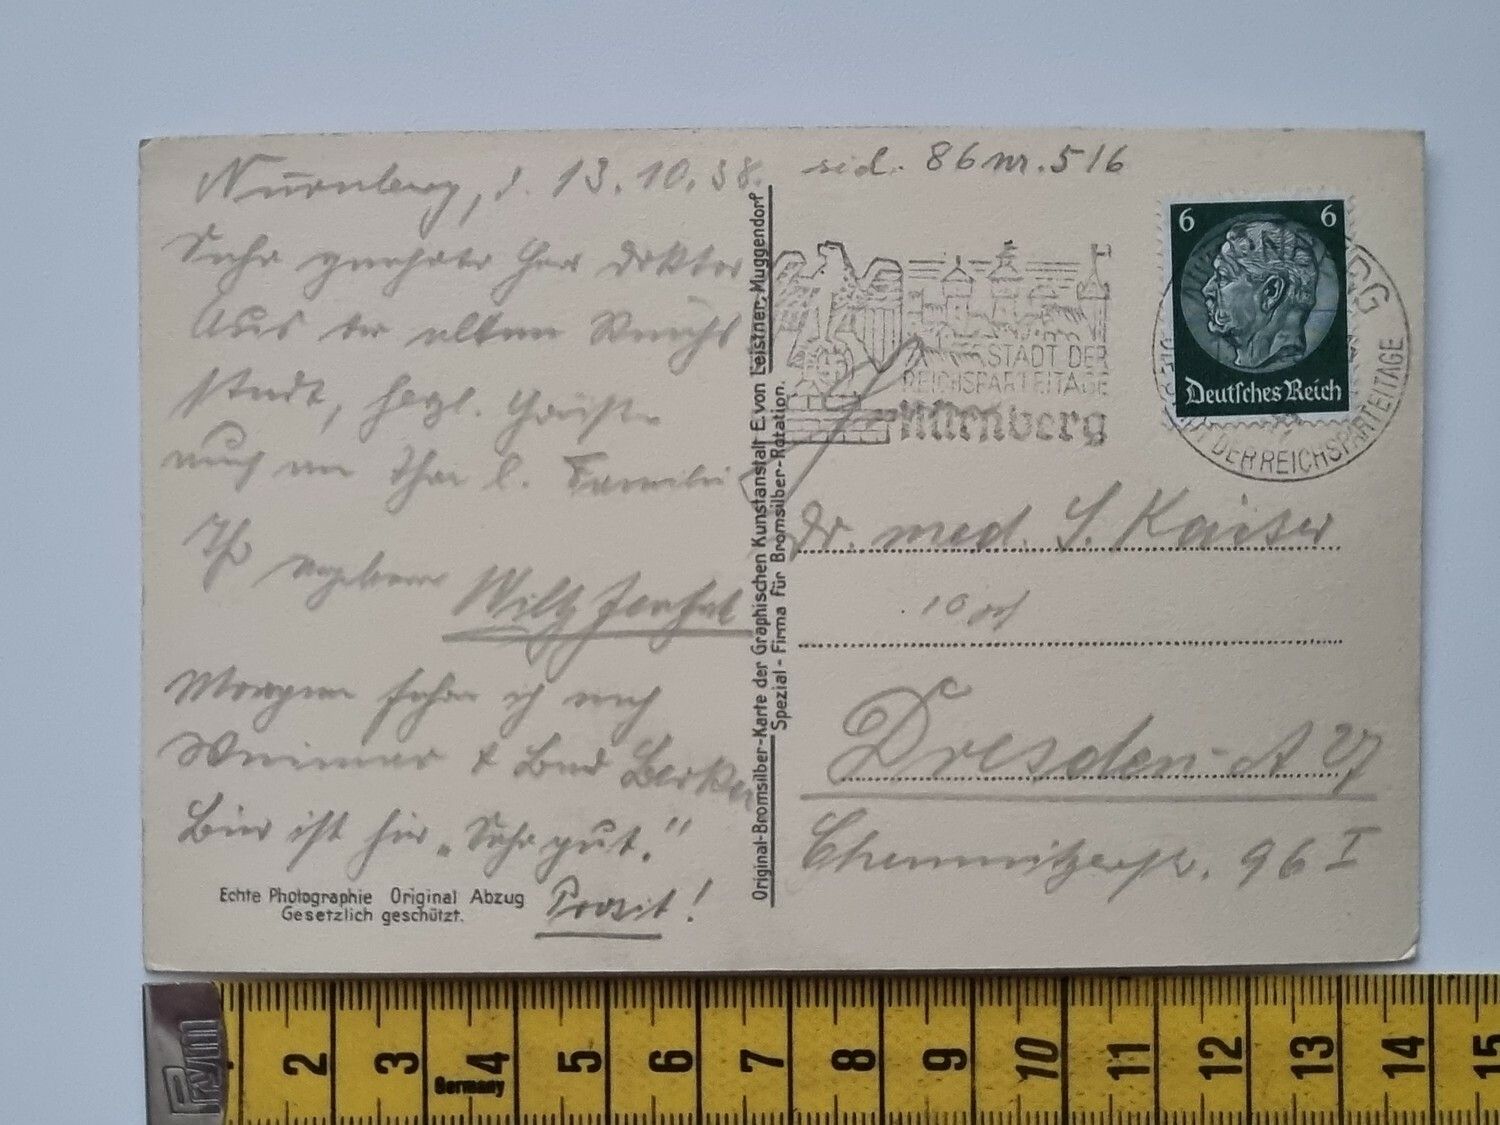 Nürnberg, d. 13.10.38.
Sehr geehrter Herr Doktor
Aus der alten Reichs
stadt, herzl. Grüsse
auch an Ihre l. Familie
Ihr ergebener
Morgen fahre ich nach
Weimar & Bad Berka
Bier ist hier „Sehr gut."
Prosit!
Echte Photographie Original Abzug
Gesetzlich geschützt.
Original-Bromsilber-Karte der Graphischen Kunstanstalt E. von Leistner, Muggendorf
Spezial-Firma für Bromsilber-Rotation.
86 nr. 516
STADT DER
REICHSPARTEITAGE
Nürnberg
6 6
Deutsches Reich
DER REICHSPARTEITAGE
Dr. med. S. Kaiser
Dresden-A 27
Chemnitzerstr. 96 I
Prym
2 3 4 5 6 7 8 9 10 11 12 13 14 15
Germany